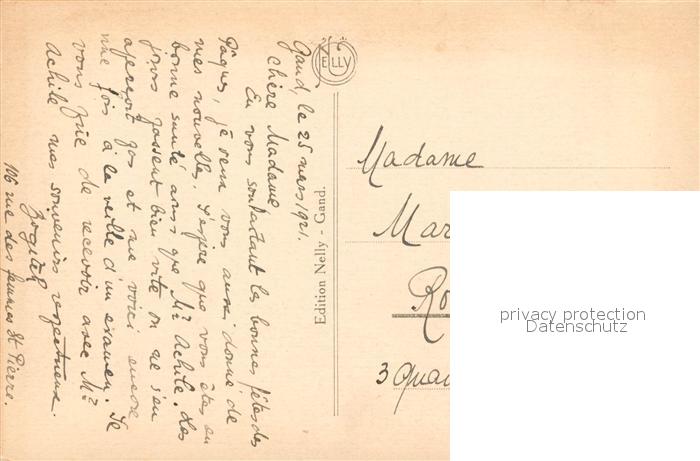 Gand, le 25 mars 1921.
Chère Madame
En vous souhaitant les bonnes fêtes de
Pâques, je viens vous aussi donne de
mes nouvelles. J'espère que vous êtes en
bonne santé ainsi que Mr Achile. Les
jours passent bien vite on ne s'en
aperçoit pas et me voici encore
une fois à la veille d'un examen. Je
vous prie de recevoir avec Mr
Achile mes souvenirs respectueux.
106 rue des femmes St Pierre.
NELLY
Edition Nelly - Gand.
Madame
Mar
Ro
3 Quai
privacy protection
Datenschutz